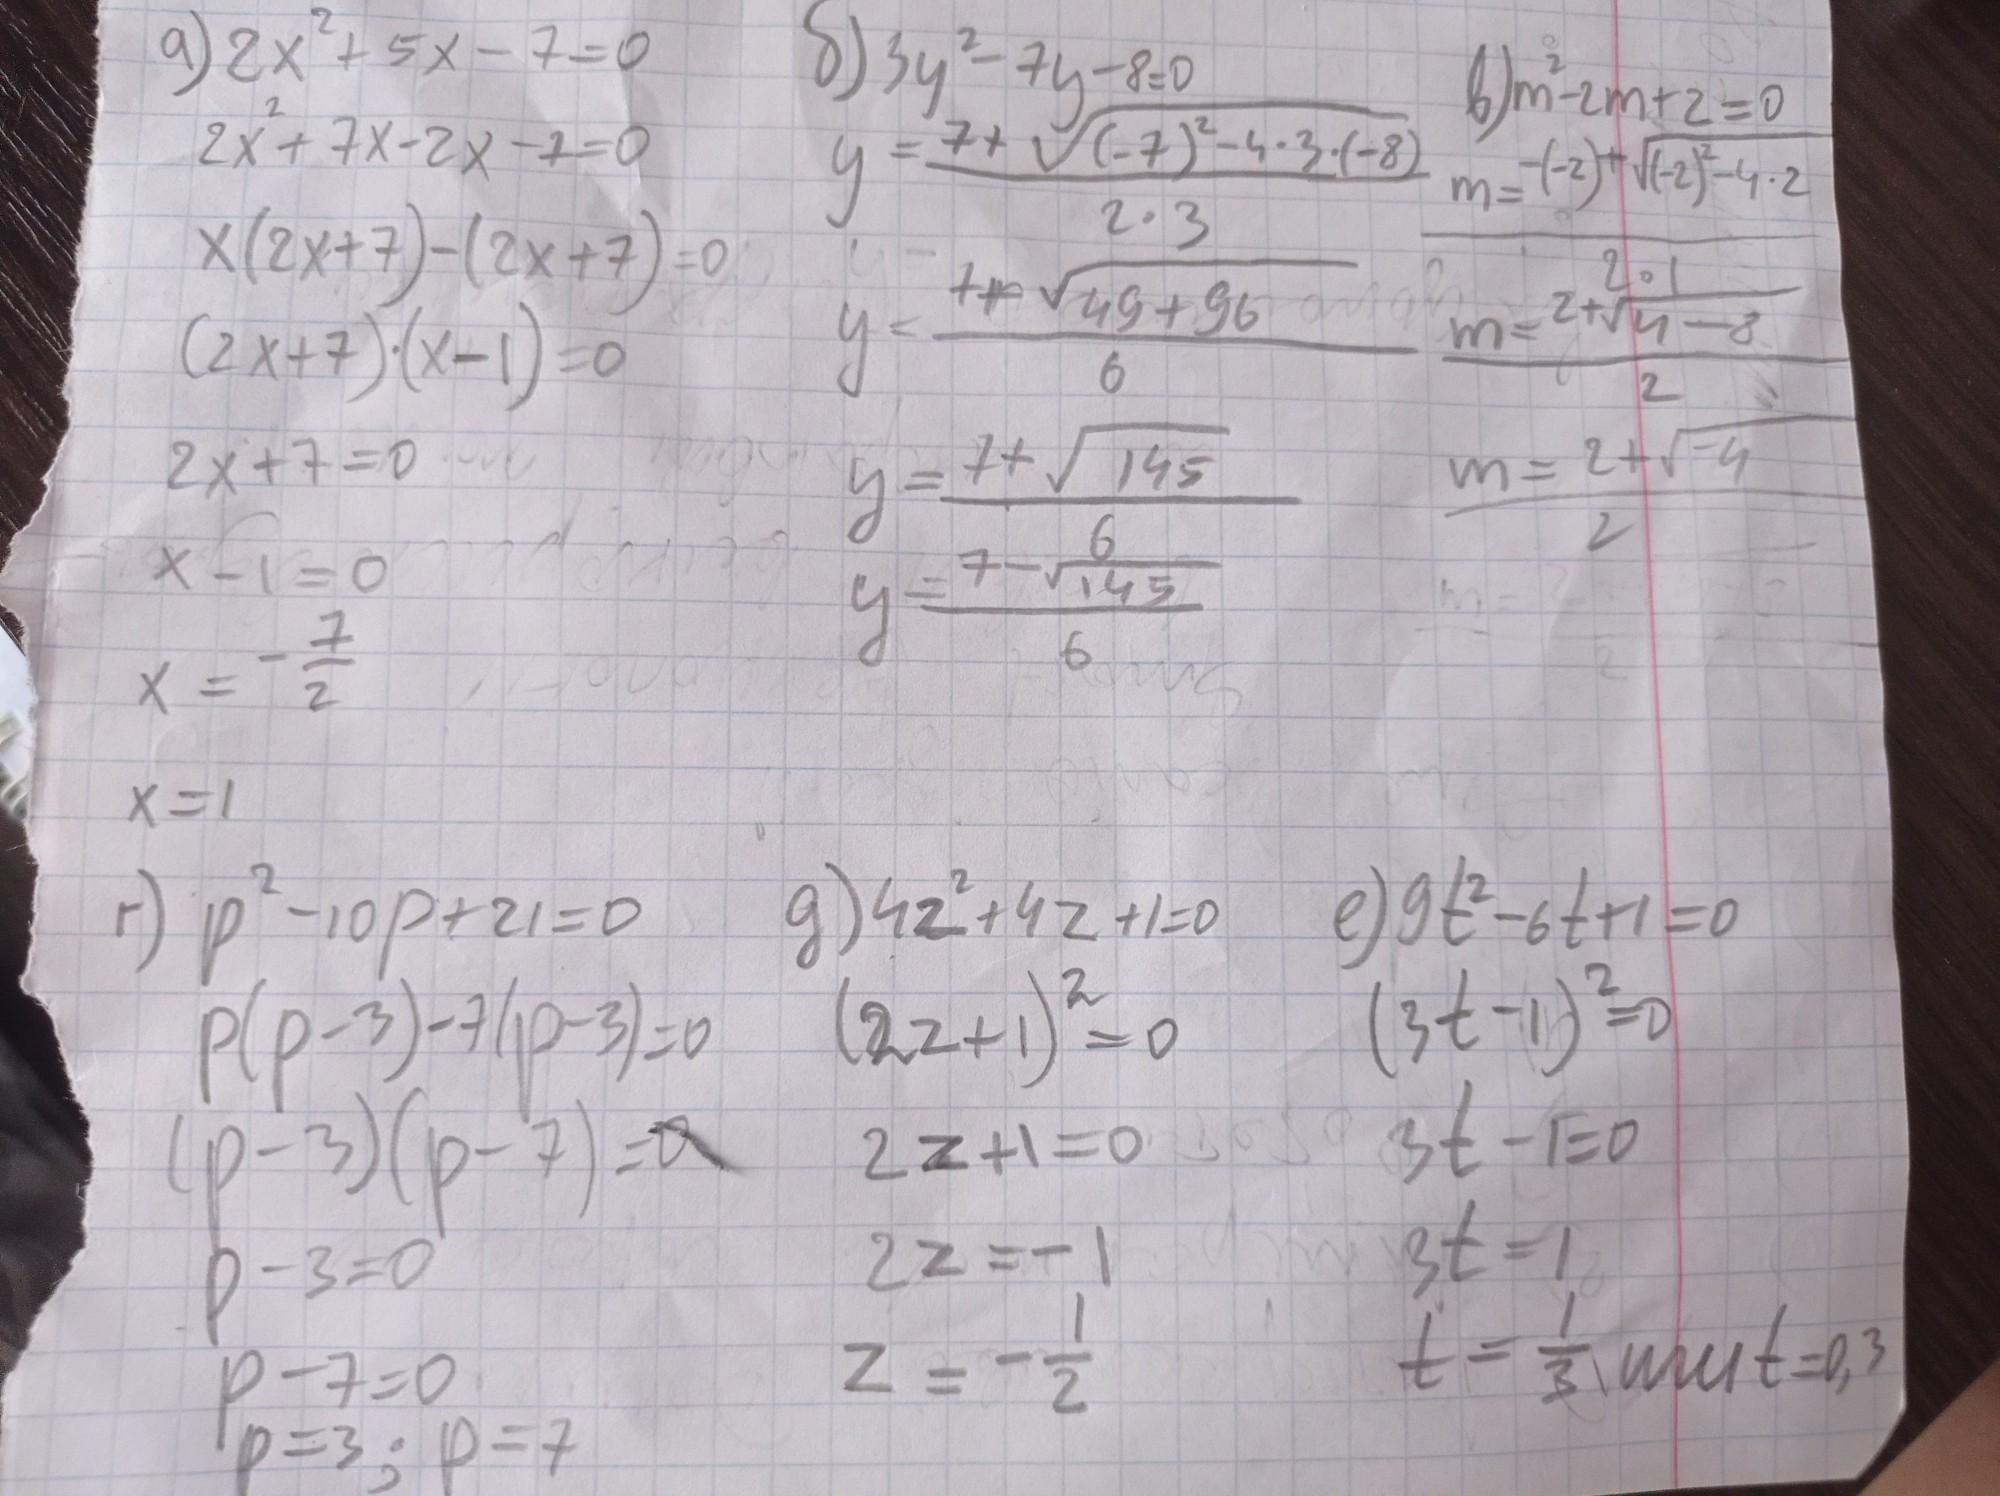 а) 2x² + 5x - 7 = 0
2x² + 7x - 2x - 7 = 0
x(2x+7) - (2x+7) = 0
(2x+7)·(x-1) = 0
2x+7 = 0
x - 1 = 0
x = -7/2
x = 1
б) 3y² - 7y - 8 = 0
y = 7+√((-7)² - 4·3·(-8)) / 2·3
y = 7+√(49+96) / 6
y = 7+√145 / 6
y = 7-√145 / 6
в) m² - 2m + 2 = 0
m = -(-2)+√((-2)² - 4·2) / 2·1
m = 2+√(4-8) / 2
m = 2+√-4 / 2
г) p² - 10p + 21 = 0
p(p-3) - 7(p-3) = 0
(p-3)(p-7) = 0
p - 3 = 0
p - 7 = 0
p = 3; p = 7
д) 4z² + 4z + 1 = 0
(2z+1)² = 0
2z + 1 = 0
2z = -1
z = -1/2
е) 9t² - 6t + 1 = 0
(3t-1)² = 0
3t - 1 = 0
3t = 1
t = 1/3 или t = 0,3